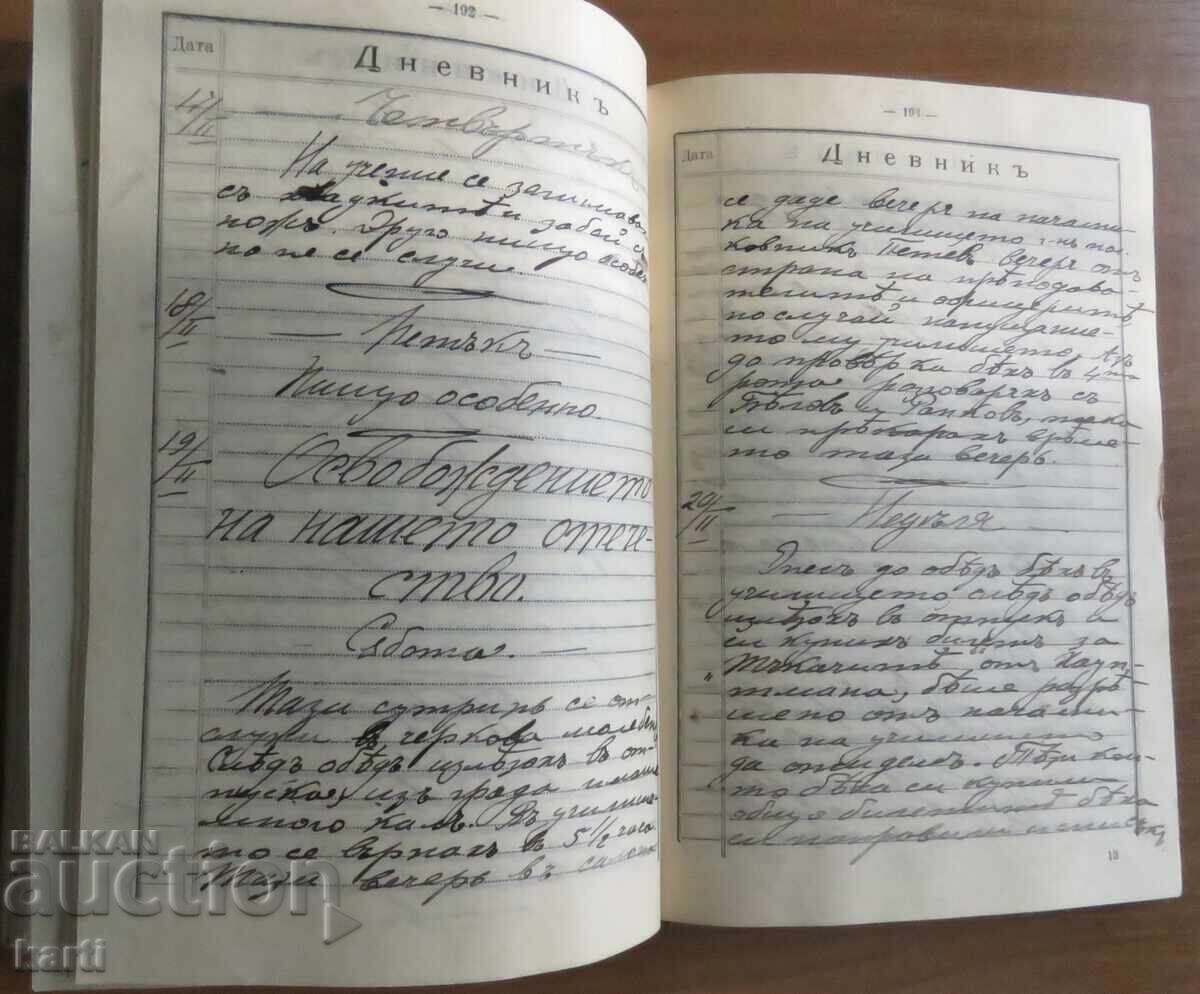 — 192 —
Дата
Дневникъ
17/II
Четвъртъкъ
На учение се занимава
съ и забой съ
ножъ. Друго нищо особен
но не се случи
18/II
— Петъкъ —
Нищо особенно.
19/II
Освобождението
на нашето отече-
ство.
Събота. —
Тази сутринь се от-
служи въ черкова молебен
Следъ обѣдъ излѣзохъ въ от-
пуска, изъ града имаше
много калъ. Въ училище-
то се върнахъ въ 5 1/2 часа
Тази вечерь въ салона
— 193 —
Дата
Дневникъ
се даде вечеря на начални-
ка на училището г-нъ пол-
ковникъ Петевъ вечеря отъ
страна на прѣподава-
телитѣ и офицеритѣ
по случай напущание-
то му училището. Азъ
до провѣрка бѣхъ въ 4та
рота разговаряхъ съ
Бѣловъ и Ранковъ, така
си прѣкарахъ врѣме-
то тази вечерь.
20/II
— Недѣля
Днесъ до обѣдъ бѣхъ въ
училището слѣдъ обѣдъ
излѣзохъ въ отпускъ и
си купихъ билетъ за
„Тъкачитѣ" отъ Хаупт-
мана, бѣше разрѣ-
шено отъ начални-
ка на училището
да отидемъ. Тѣзи кои-
то бѣха си купили
общо билетитѣ бѣха
си направили списъкъ
13
BALKAN
auction
karti